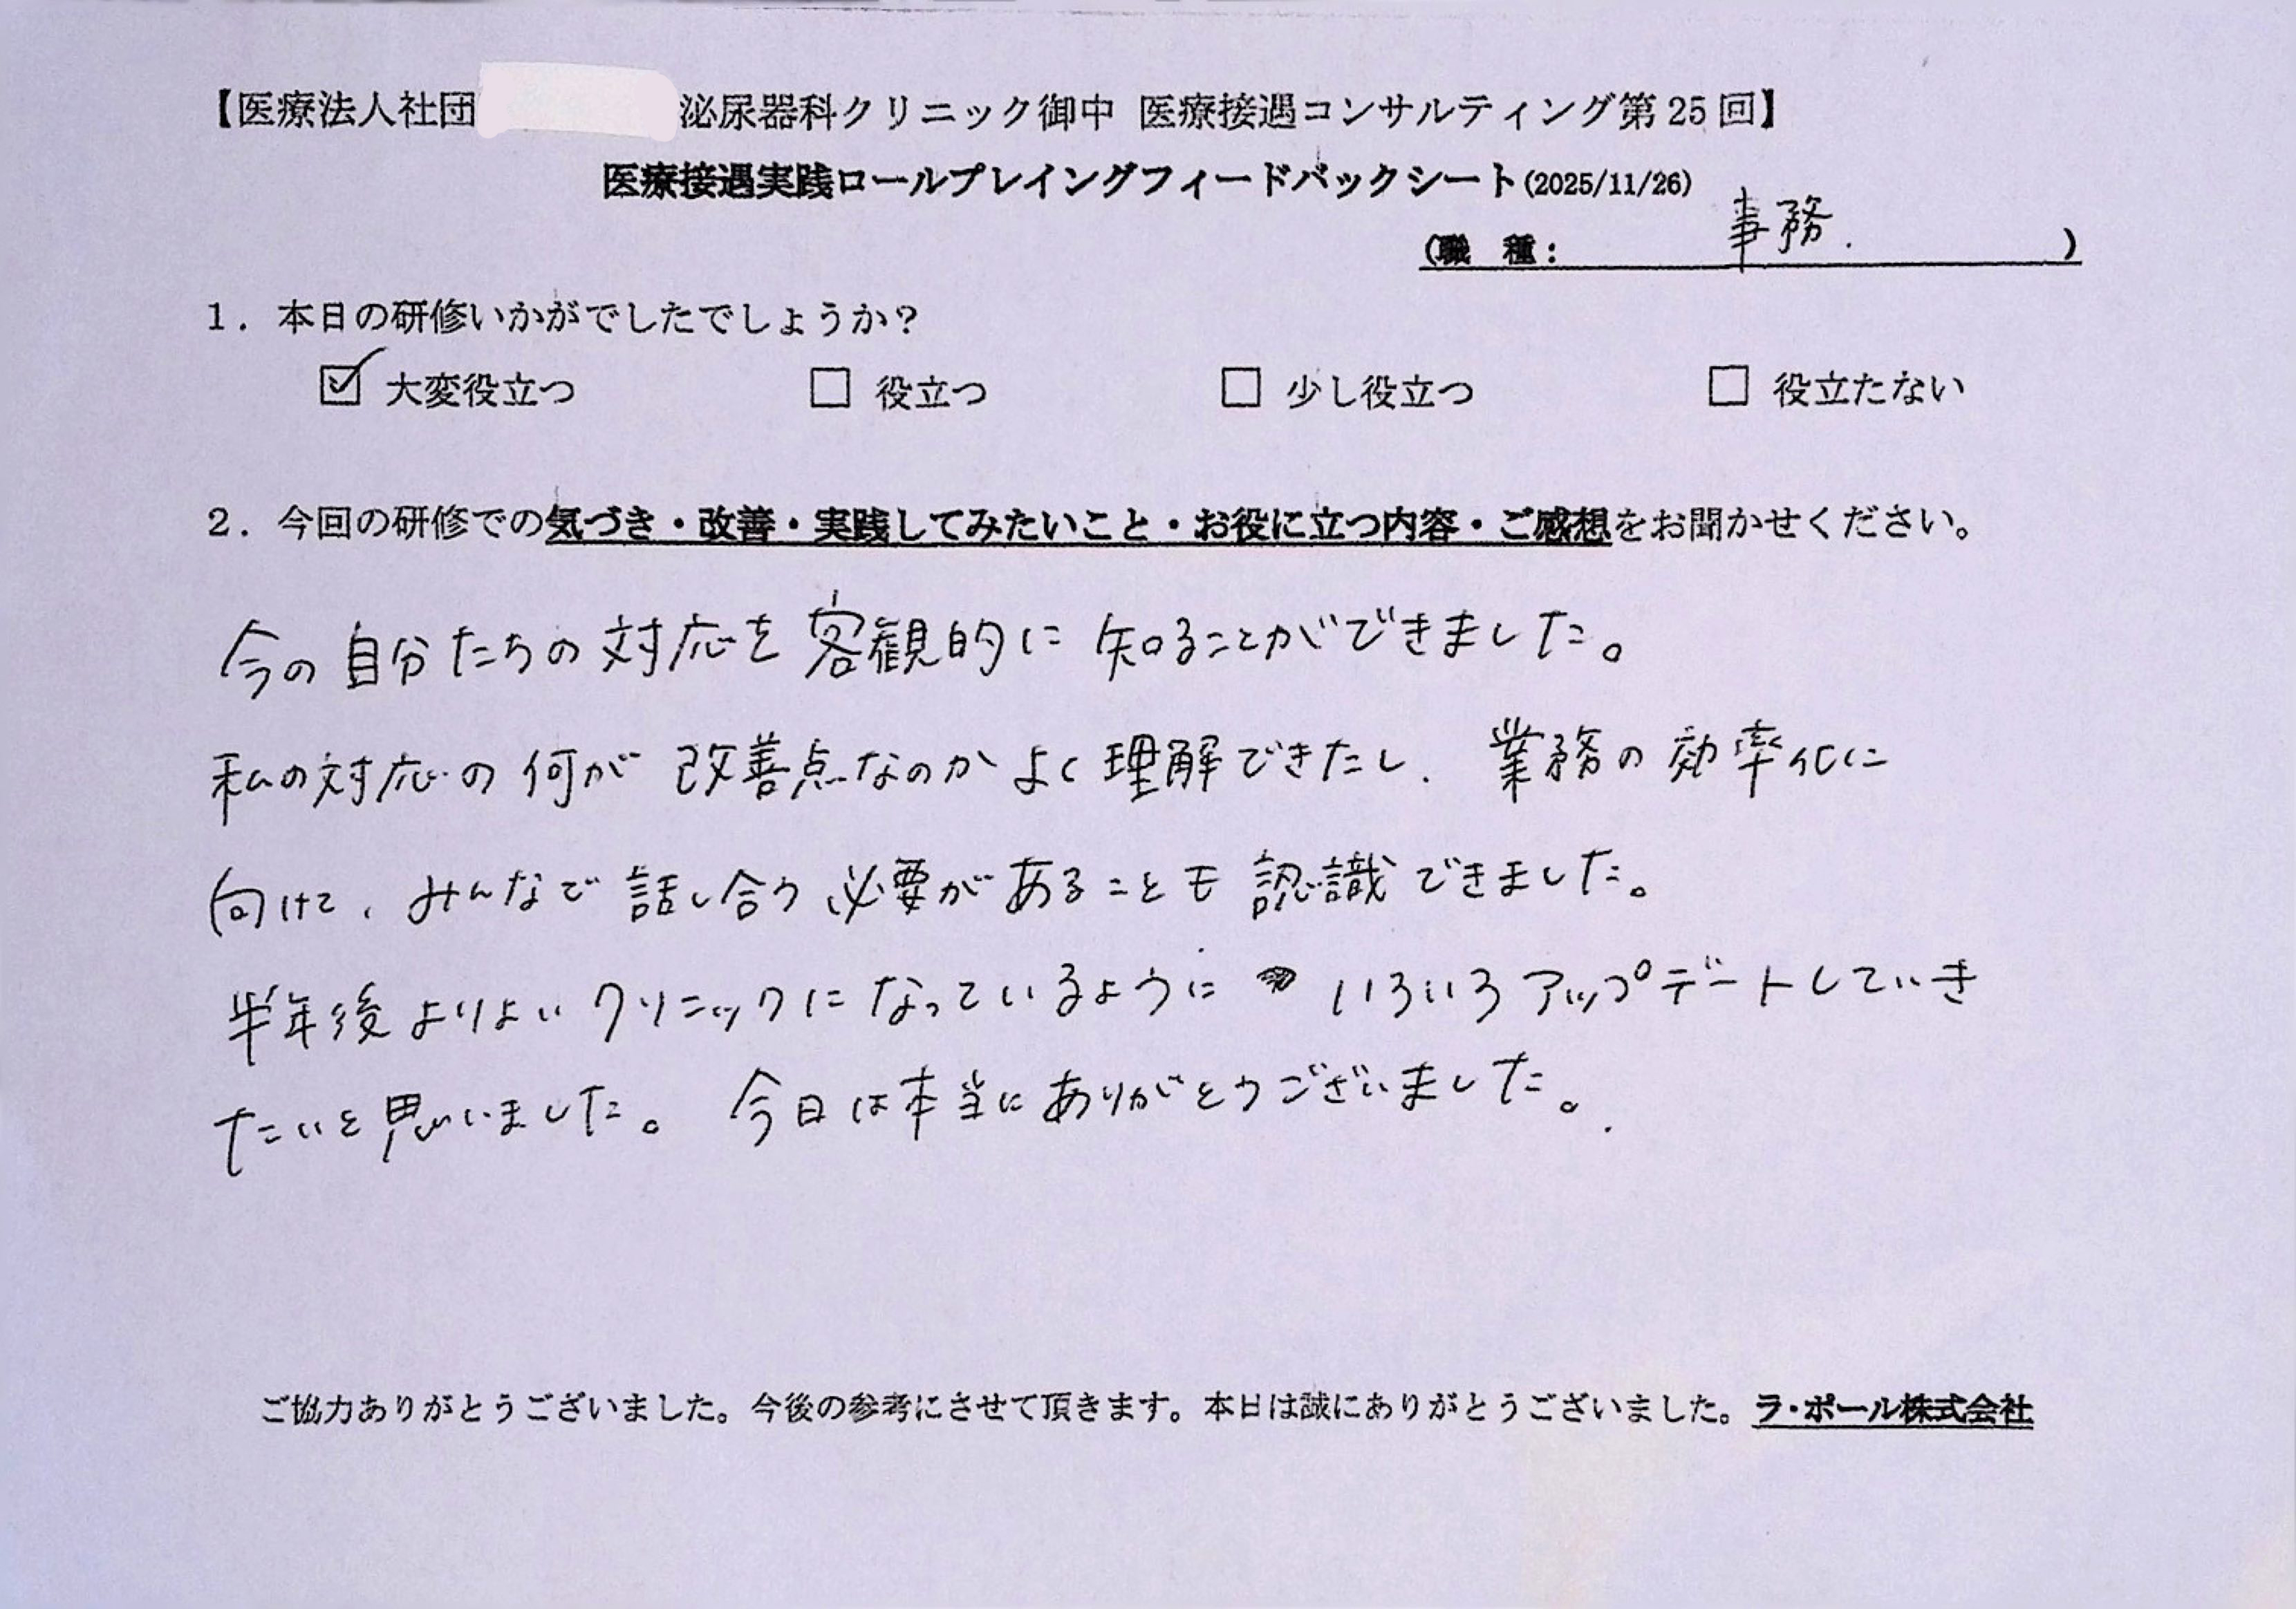 【医療法人社団 泌尿器科クリニック御中 医療接遇コンサルティング第25回】
医療接遇実践ロールプレイングフィードバックシート(2025/11/26)
(職 種: 事務. )
1. 本日の研修いかがでしたでしょうか?
☑ 大変役立つ □ 役立つ □ 少し役立つ □ 役立たない
2. 今回の研修での気づき・改善・実践してみたいこと・お役に立つ内容・ご感想をお聞かせください。
今の自分たちの対応を客観的に知ることができました。
私の対応の何が改善点なのかよく理解できたし、業務の効率化に
向けて、みんなで話し合う必要があることも認識できました。
半年後よりよいクリニックになっているように いろいろアップデートしていき
たいと思いました。今日は本当にありがとうございました。
ご協力ありがとうございました。今後の参考にさせて頂きます。本日は誠にありがとうございました。ラ・ポール株式会社